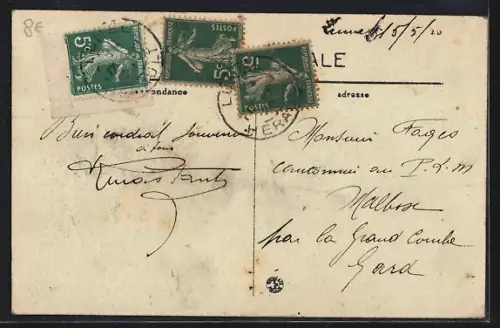 8€
5c POSTES
5c POSTES
5c POSTES
HERA
15/5/20
ALE
pondance
adresse
Bien cordial souvenir
à tous
Monsieur Fages
cantonnier au P.L.M
Malbosc
par la Grand Combe
Gard